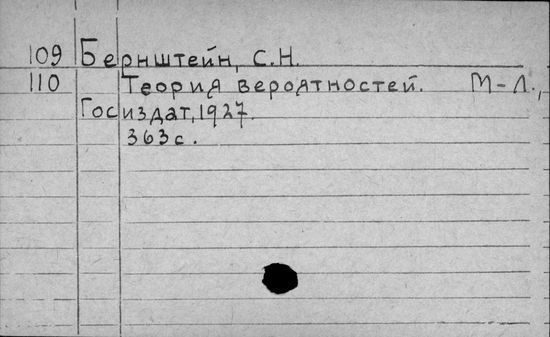 109 Бернштейн, С.Н.
110 Теория вероятностей. М-Л.,
Госиздат, 1927.
363 с.